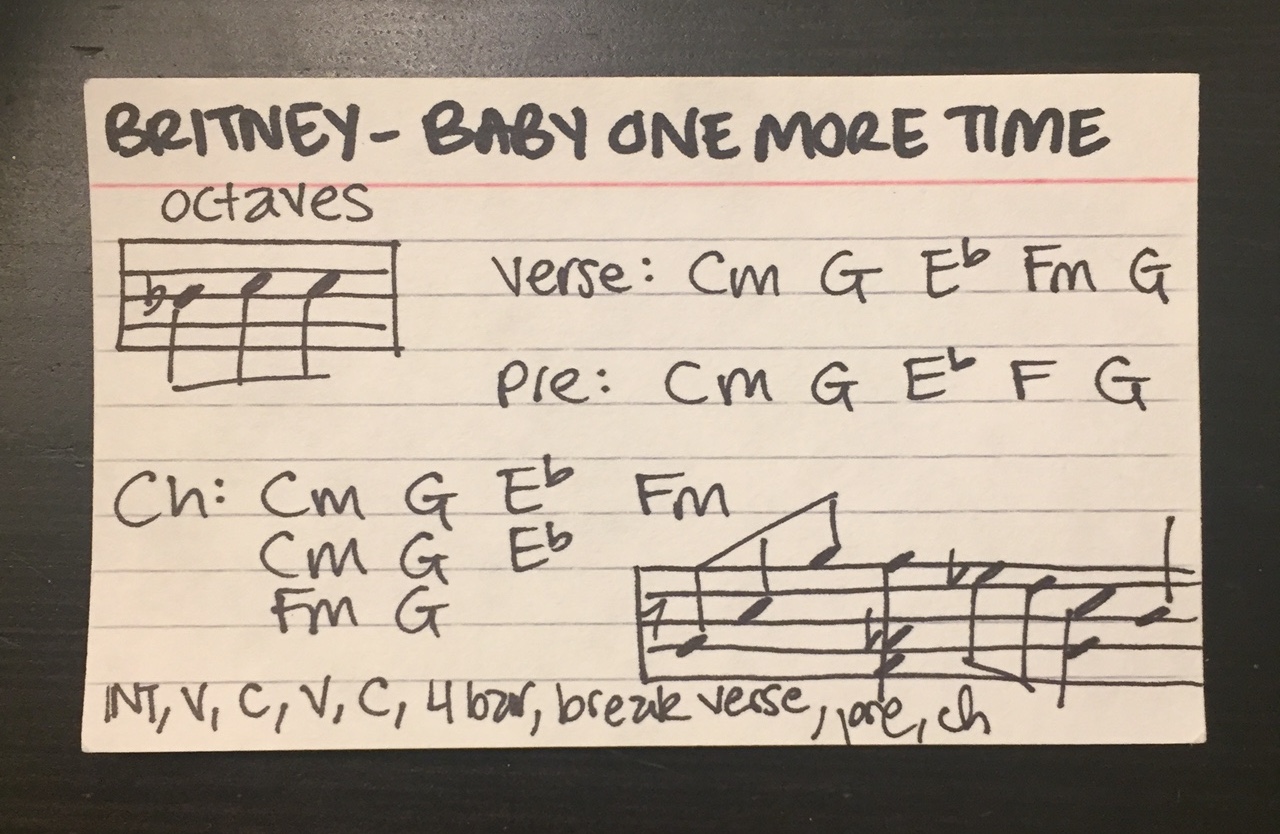 BRITNEY - BABY ONE MORE TIME
octaves
Verse: Cm G E♭ Fm G
Pre: Cm G E♭ F G
Ch: Cm G E♭ Fm
Cm G E♭
Fm G
INT, V, C, V, C, 4 bar, break verse, pre, ch